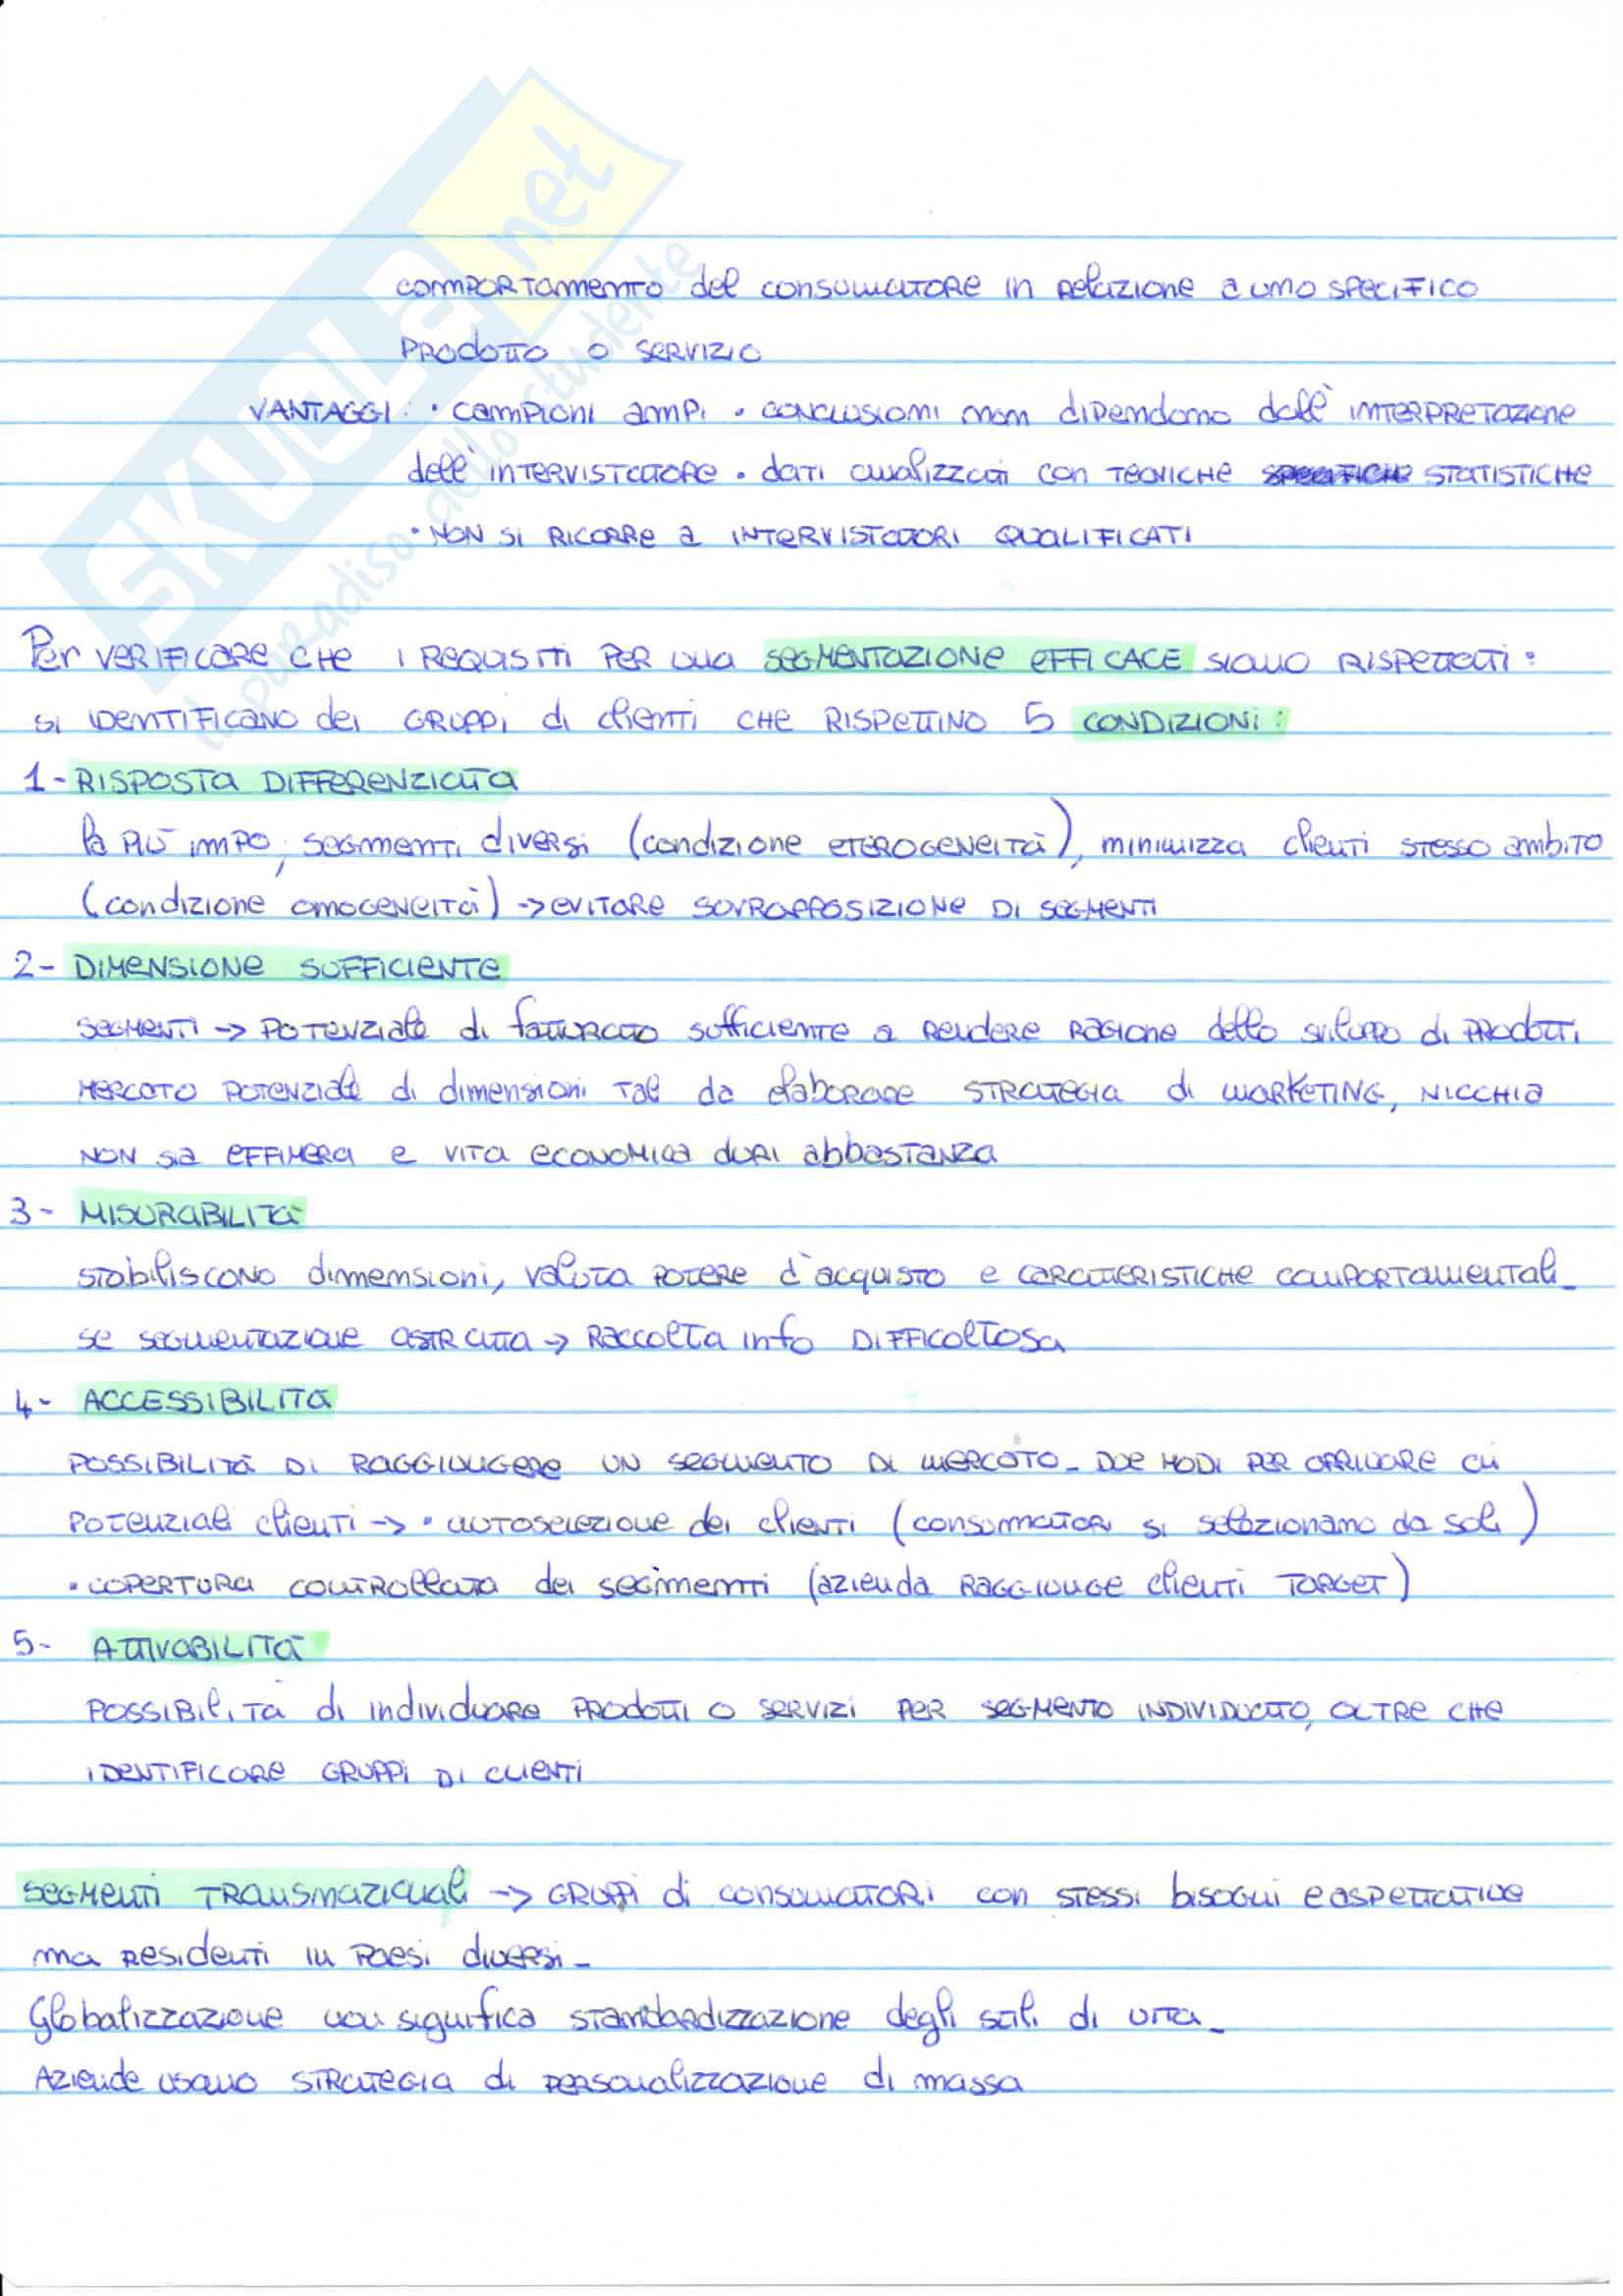 SKUOLA.net
il paradiso dello studente
comportamento del consumatore in relazione a uno specifico
prodotto o servizio
VANTAGGI: • campioni ampi • conclusioni non dipendono dall'interpretazione
dell'intervistatore • dati analizzati con tecniche statistiche
• NON SI RICORRE A INTERVISTATORI QUALIFICATI
Per verificare che i requisiti per una segmentazione efficace siano rispettati:
si identificano dei gruppi di clienti che rispettino 5 condizioni:
1- RISPOSTA DIFFERENZIATA
la più impo, segmenti diversi (condizione eterogeneità), minimizza clienti stesso ambito
(condizione omogeneità) -> evitare sovrapposizione di segmenti
2- DIMENSIONE SUFFICIENTE
segmenti -> potenziale di fatturato sufficiente a rendere ragione dello sviluppo di prodotti
mercato potenziale di dimensioni tali da elaborare strategia di marketing, nicchia
non sia effimera e vita economica duri abbastanza
3- MISURABILITÀ
stabiliscono dimensioni, valuta potere d'acquisto e caratteristiche comportamentali_
se segmentazione astratta -> raccolta info difficoltosa
4- ACCESSIBILITÀ
possibilità di raggiungere un segmento di mercato_ due modi per arrivare ai
potenziali clienti -> • autoselezione dei clienti (consumatori si selezionano da soli)
• copertura controllata dei segimemti (azienda raggiunge clienti target)
5- ATTIVABILITÀ
possibilità di individuare prodotti o servizi per segmento individuato, oltre che
identificare gruppi di clienti
SEGMENTI TRANSNAZIONALI -> gruppi di consumatori con stessi bisogni e aspettative
ma residenti in Paesi diversi_
Globalizzazione non significa standardizzazione degli stili di vita_
Aziende usano strategia di personalizzazione di massa